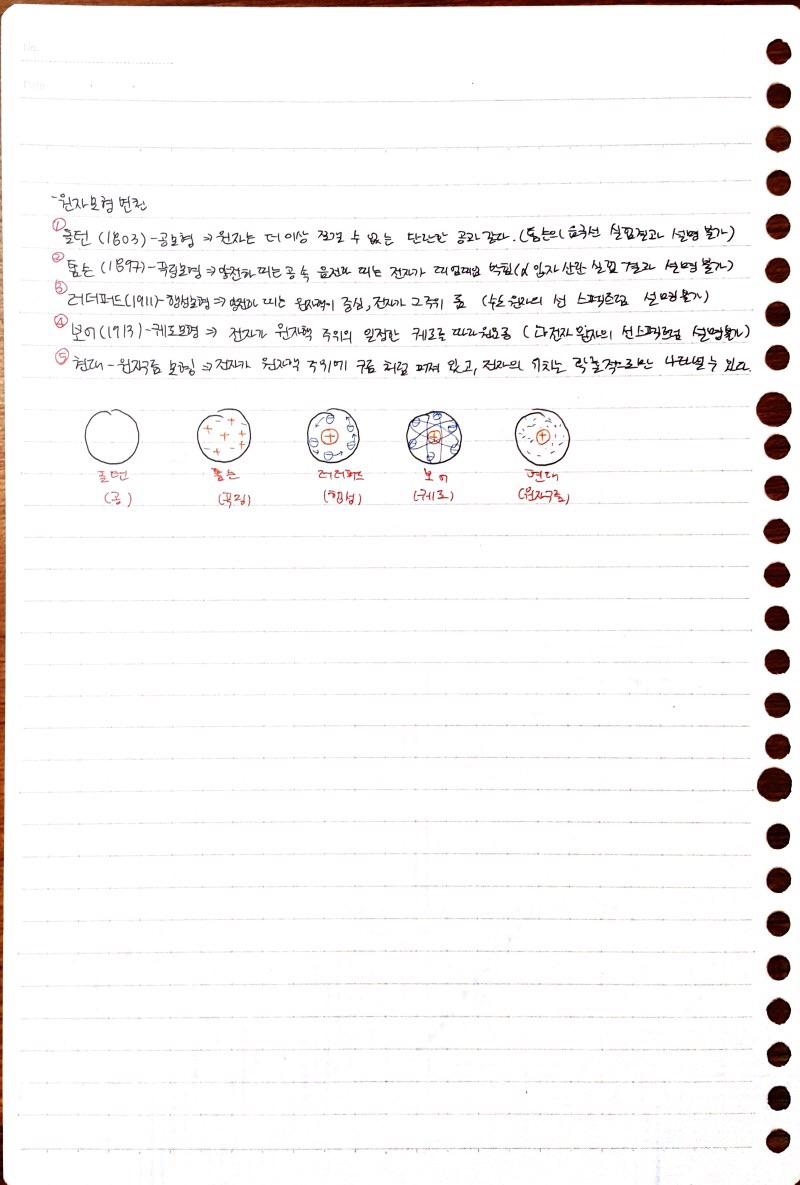 No.
Date
-원자모형 변천
① 돌턴 (1803) - 공모형 → 원자는 더 이상 쪼갤 수 없는 단단한 공과 같다. (톰슨의 음극선 실험결과 설명 불가)
② 톰슨 (1897) - 푸딩모형 → 양전하 띠는 공 속 음전하 띠는 전자가 띄엄띄엄 박힘 (α 입자 산란 실험 결과 설명 불가)
③ 러더퍼드 (1911) - 행성모형 → 양전하 띠는 원자핵이 중심, 전자가 그 주위 돎 (수소 원자의 선 스펙트럼 설명 불가)
④ 보어 (1913) - 궤도모형 → 전자가 원자핵 주위의 일정한 궤도를 따라 원운동 (다전자 원자의 선 스펙트럼 설명 불가)
⑤ 현대 - 원자구름 모형 → 전자가 원자핵 주위에 구름 처럼 퍼져 있고, 전자의 위치는 확률적으로만 나타낼 수 있다.
돌턴 톰슨 러더퍼드 보어 현대
(공) (푸딩) (행성) (궤도) (원자구름)